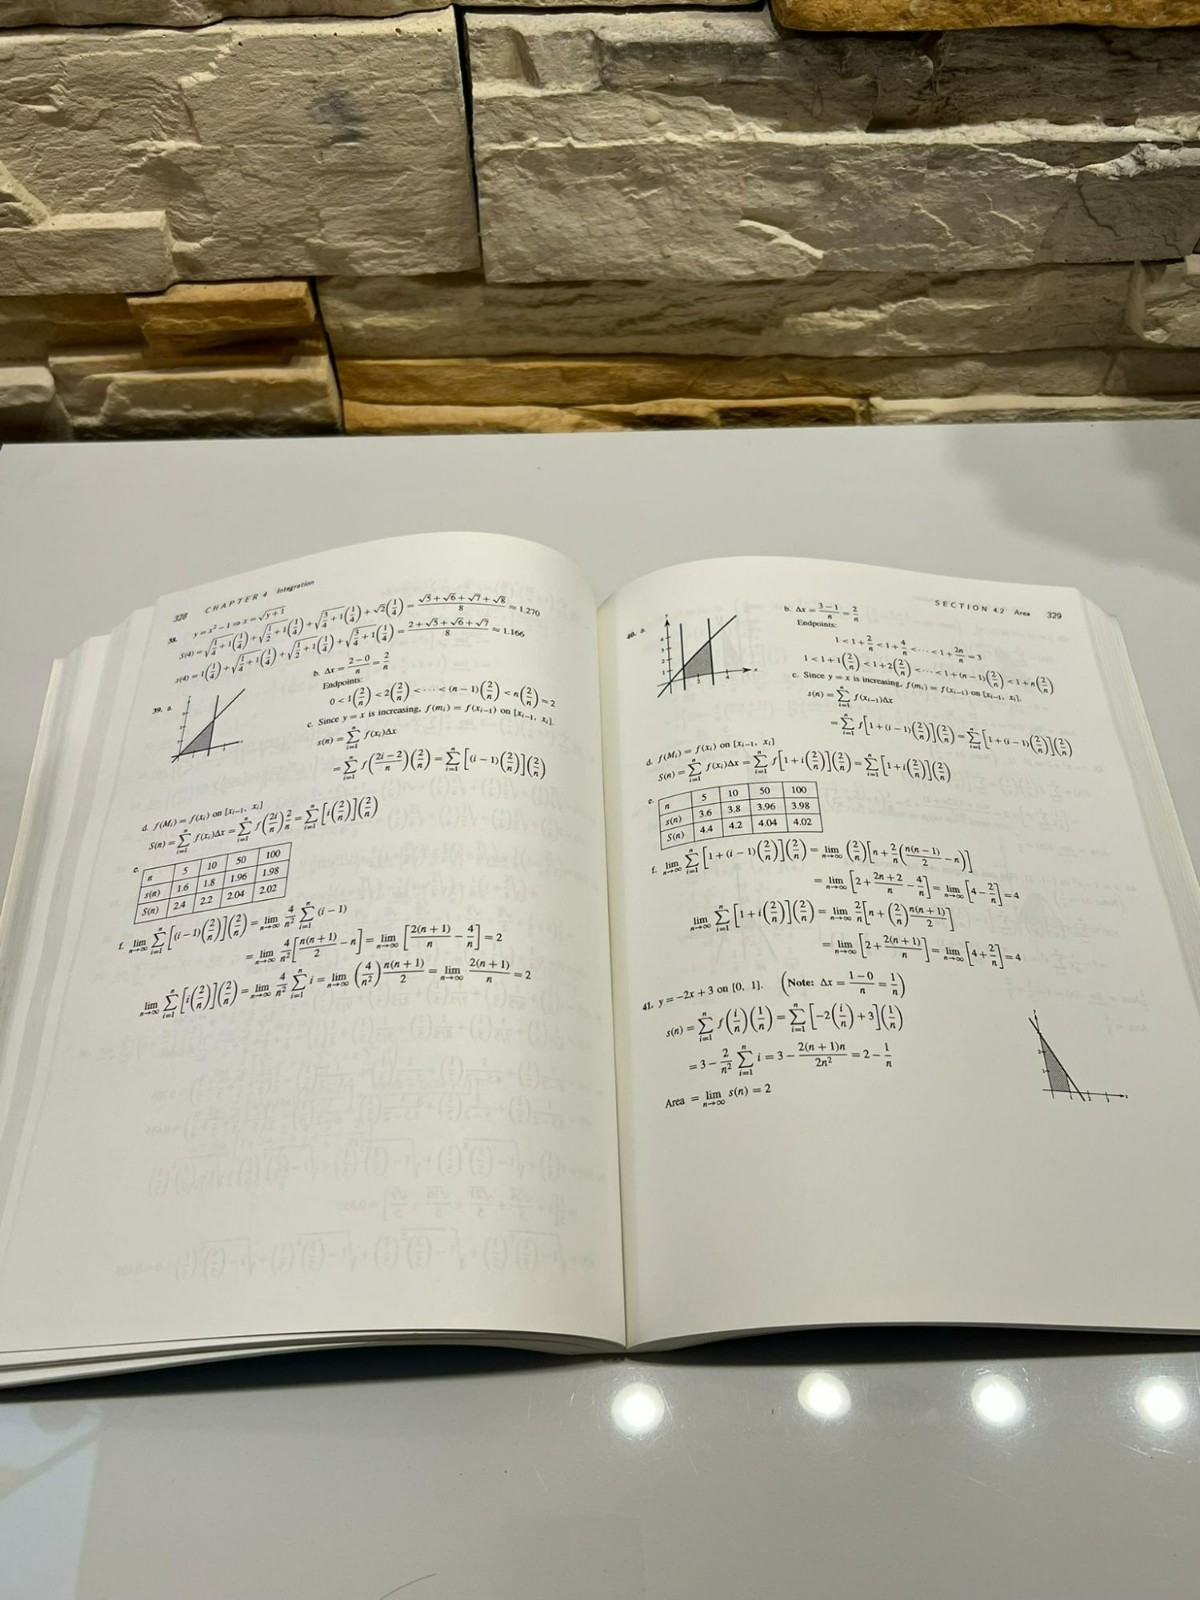 328 CHAPTER 4 Integration
38. y = x² − 1 ⇒ x = √(y + 1)
S(4) = √(1/4 + 1)(1/4) + √(1/2 + 1)(1/4) + √(3/4 + 1)(1/4) + √2(1/4) = (√5 + √6 + √7 + √8)/8 ≈ 1.270
s(4) = 1(1/4) + √(1/4 + 1)(1/4) + √(1/2 + 1)(1/4) + √(3/4 + 1)(1/4) = (2 + √5 + √6 + √7)/8 ≈ 1.166
39. a.
b. Δx = (2 − 0)/n = 2/n
Endpoints:
0 < 1(2/n) < 2(2/n) < ⋯ < (n − 1)(2/n) < n(2/n) = 2
c. Since y = x is increasing, f(mᵢ) = f(xᵢ₋₁) on [xᵢ₋₁, xᵢ].
s(n) = ∑ᵢ₌₁ⁿ f(xᵢ)Δx
= ∑ᵢ₌₁ⁿ f((2i − 2)/n)(2/n) = ∑ᵢ₌₁ⁿ [(i − 1)(2/n)](2/n)
d. f(Mᵢ) = f(xᵢ) on [xᵢ₋₁, xᵢ]
S(n) = ∑ᵢ₌₁ⁿ f(xᵢ)Δx = ∑ᵢ₌₁ⁿ f(2i/n)2/n = ∑ᵢ₌₁ⁿ [i(2/n)](2/n)
e.
n 5 10 50 100
s(n) 1.6 1.8 1.96 1.98
S(n) 2.4 2.2 2.04 2.02
f. lim n→∞ ∑ᵢ₌₁ⁿ [(i − 1)(2/n)](2/n) = lim n→∞ 4/n² ∑ᵢ₌₁ⁿ (i − 1)
= lim n→∞ 4/n² [n(n + 1)/2 − n] = lim n→∞ [2(n + 1)/n − 4/n] = 2
lim n→∞ ∑ᵢ₌₁ⁿ [i(2/n)](2/n) = lim n→∞ 4/n² ∑ᵢ₌₁ⁿ i = lim n→∞ (4/n²) n(n + 1)/2 = lim n→∞ 2(n + 1)/n = 2
SECTION 4.2 Area 329
40. a.
b. Δx = (3 − 1)/n = 2/n
Endpoints:
1 < 1 + 2/n < 1 + 4/n < ⋯ < 1 + 2n/n = 3
1 < 1 + 1(2/n) < 1 + 2(2/n) < ⋯ < 1 + (n − 1)(2/n) < 1 + n(2/n)
c. Since y = x is increasing, f(mᵢ) = f(xᵢ₋₁) on [xᵢ₋₁, xᵢ].
s(n) = ∑ᵢ₌₁ⁿ f(xᵢ₋₁)Δx
= ∑ᵢ₌₁ⁿ f[1 + (i − 1)(2/n)](2/n) = ∑ᵢ₌₁ⁿ [1 + (i − 1)(2/n)](2/n)
d. f(Mᵢ) = f(xᵢ) on [xᵢ₋₁, xᵢ]
S(n) = ∑ᵢ₌₁ⁿ f(xᵢ)Δx = ∑ᵢ₌₁ⁿ f[1 + i(2/n)](2/n) = ∑ᵢ₌₁ⁿ [1 + i(2/n)](2/n)
e.
n 5 10 50 100
s(n) 3.6 3.8 3.96 3.98
S(n) 4.4 4.2 4.04 4.02
f. lim n→∞ ∑ᵢ₌₁ⁿ [1 + (i − 1)(2/n)](2/n) = lim n→∞ (2/n)[n + 2/n(n(n − 1)/2 − n)]
= lim n→∞ [2 + (2n + 2)/n − 4/n] = lim n→∞ [4 − 2/n] = 4
lim n→∞ ∑ᵢ₌₁ⁿ [1 + i(2/n)](2/n) = lim n→∞ 2/n[n + (2/n) n(n + 1)/2]
= lim n→∞ [2 + 2(n + 1)/n] = lim n→∞ [4 + 2/n] = 4
41. y = −2x + 3 on [0, 1]. (Note: Δx = (1 − 0)/n = 1/n)
s(n) = ∑ᵢ₌₁ⁿ f(i/n)(1/n) = ∑ᵢ₌₁ⁿ [−2(i/n) + 3](1/n)
= 3 − 2/n² ∑ᵢ₌₁ⁿ i = 3 − 2(n + 1)n/2n² = 2 − 1/n
Area = lim n→∞ s(n) = 2